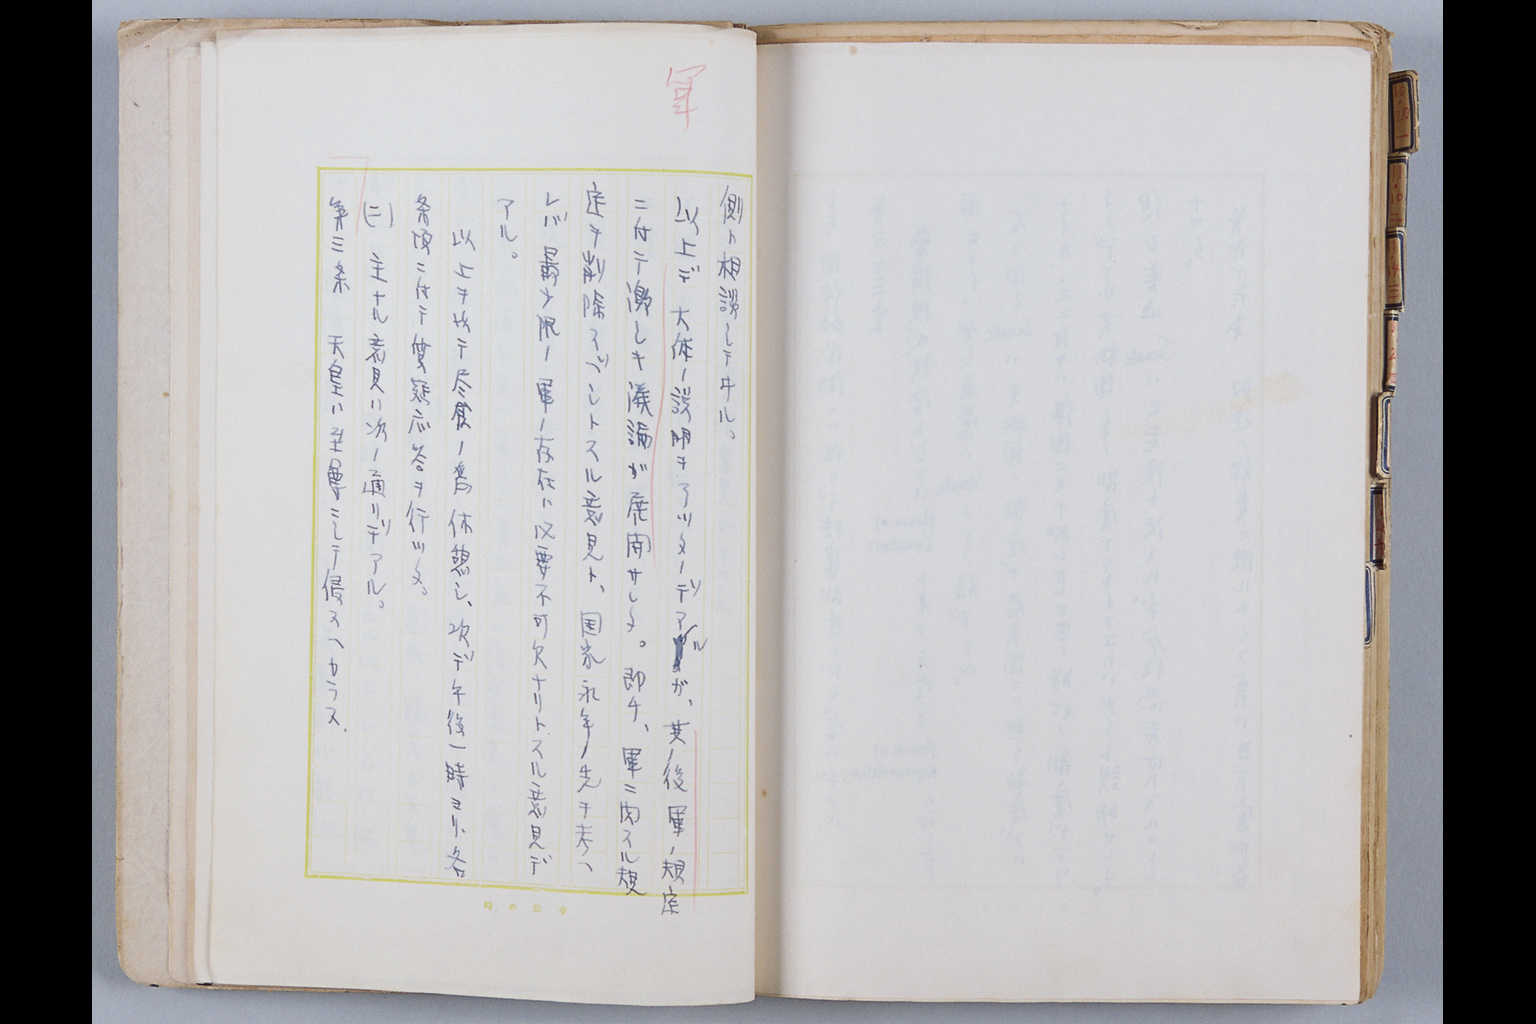 軍
側ト相談シテヰル。
以上デ大体ノ説明ヲアツタノデアルガ、其ノ後軍ノ規定
ニ付テ激シキ議論ガ展開サレタ。即チ、軍ニ関スル規
定ヲ削除スベシトスル意見ト、国家永年ノ先ヲ考ヘ
レバ最少限ノ軍ノ存在ハ必要不可欠ナリトスル意見デ
アル。
以上ヲ以テ尽食ノ為休憩シ、次デ午後一時ヨリ、各
条項ニ付テ質疑応答ヲ行ツタ。
(二) 主ナル意見ハ次ノ通リデアル。
第三条 天皇ハ至尊ニシテ侵スヘカラス.